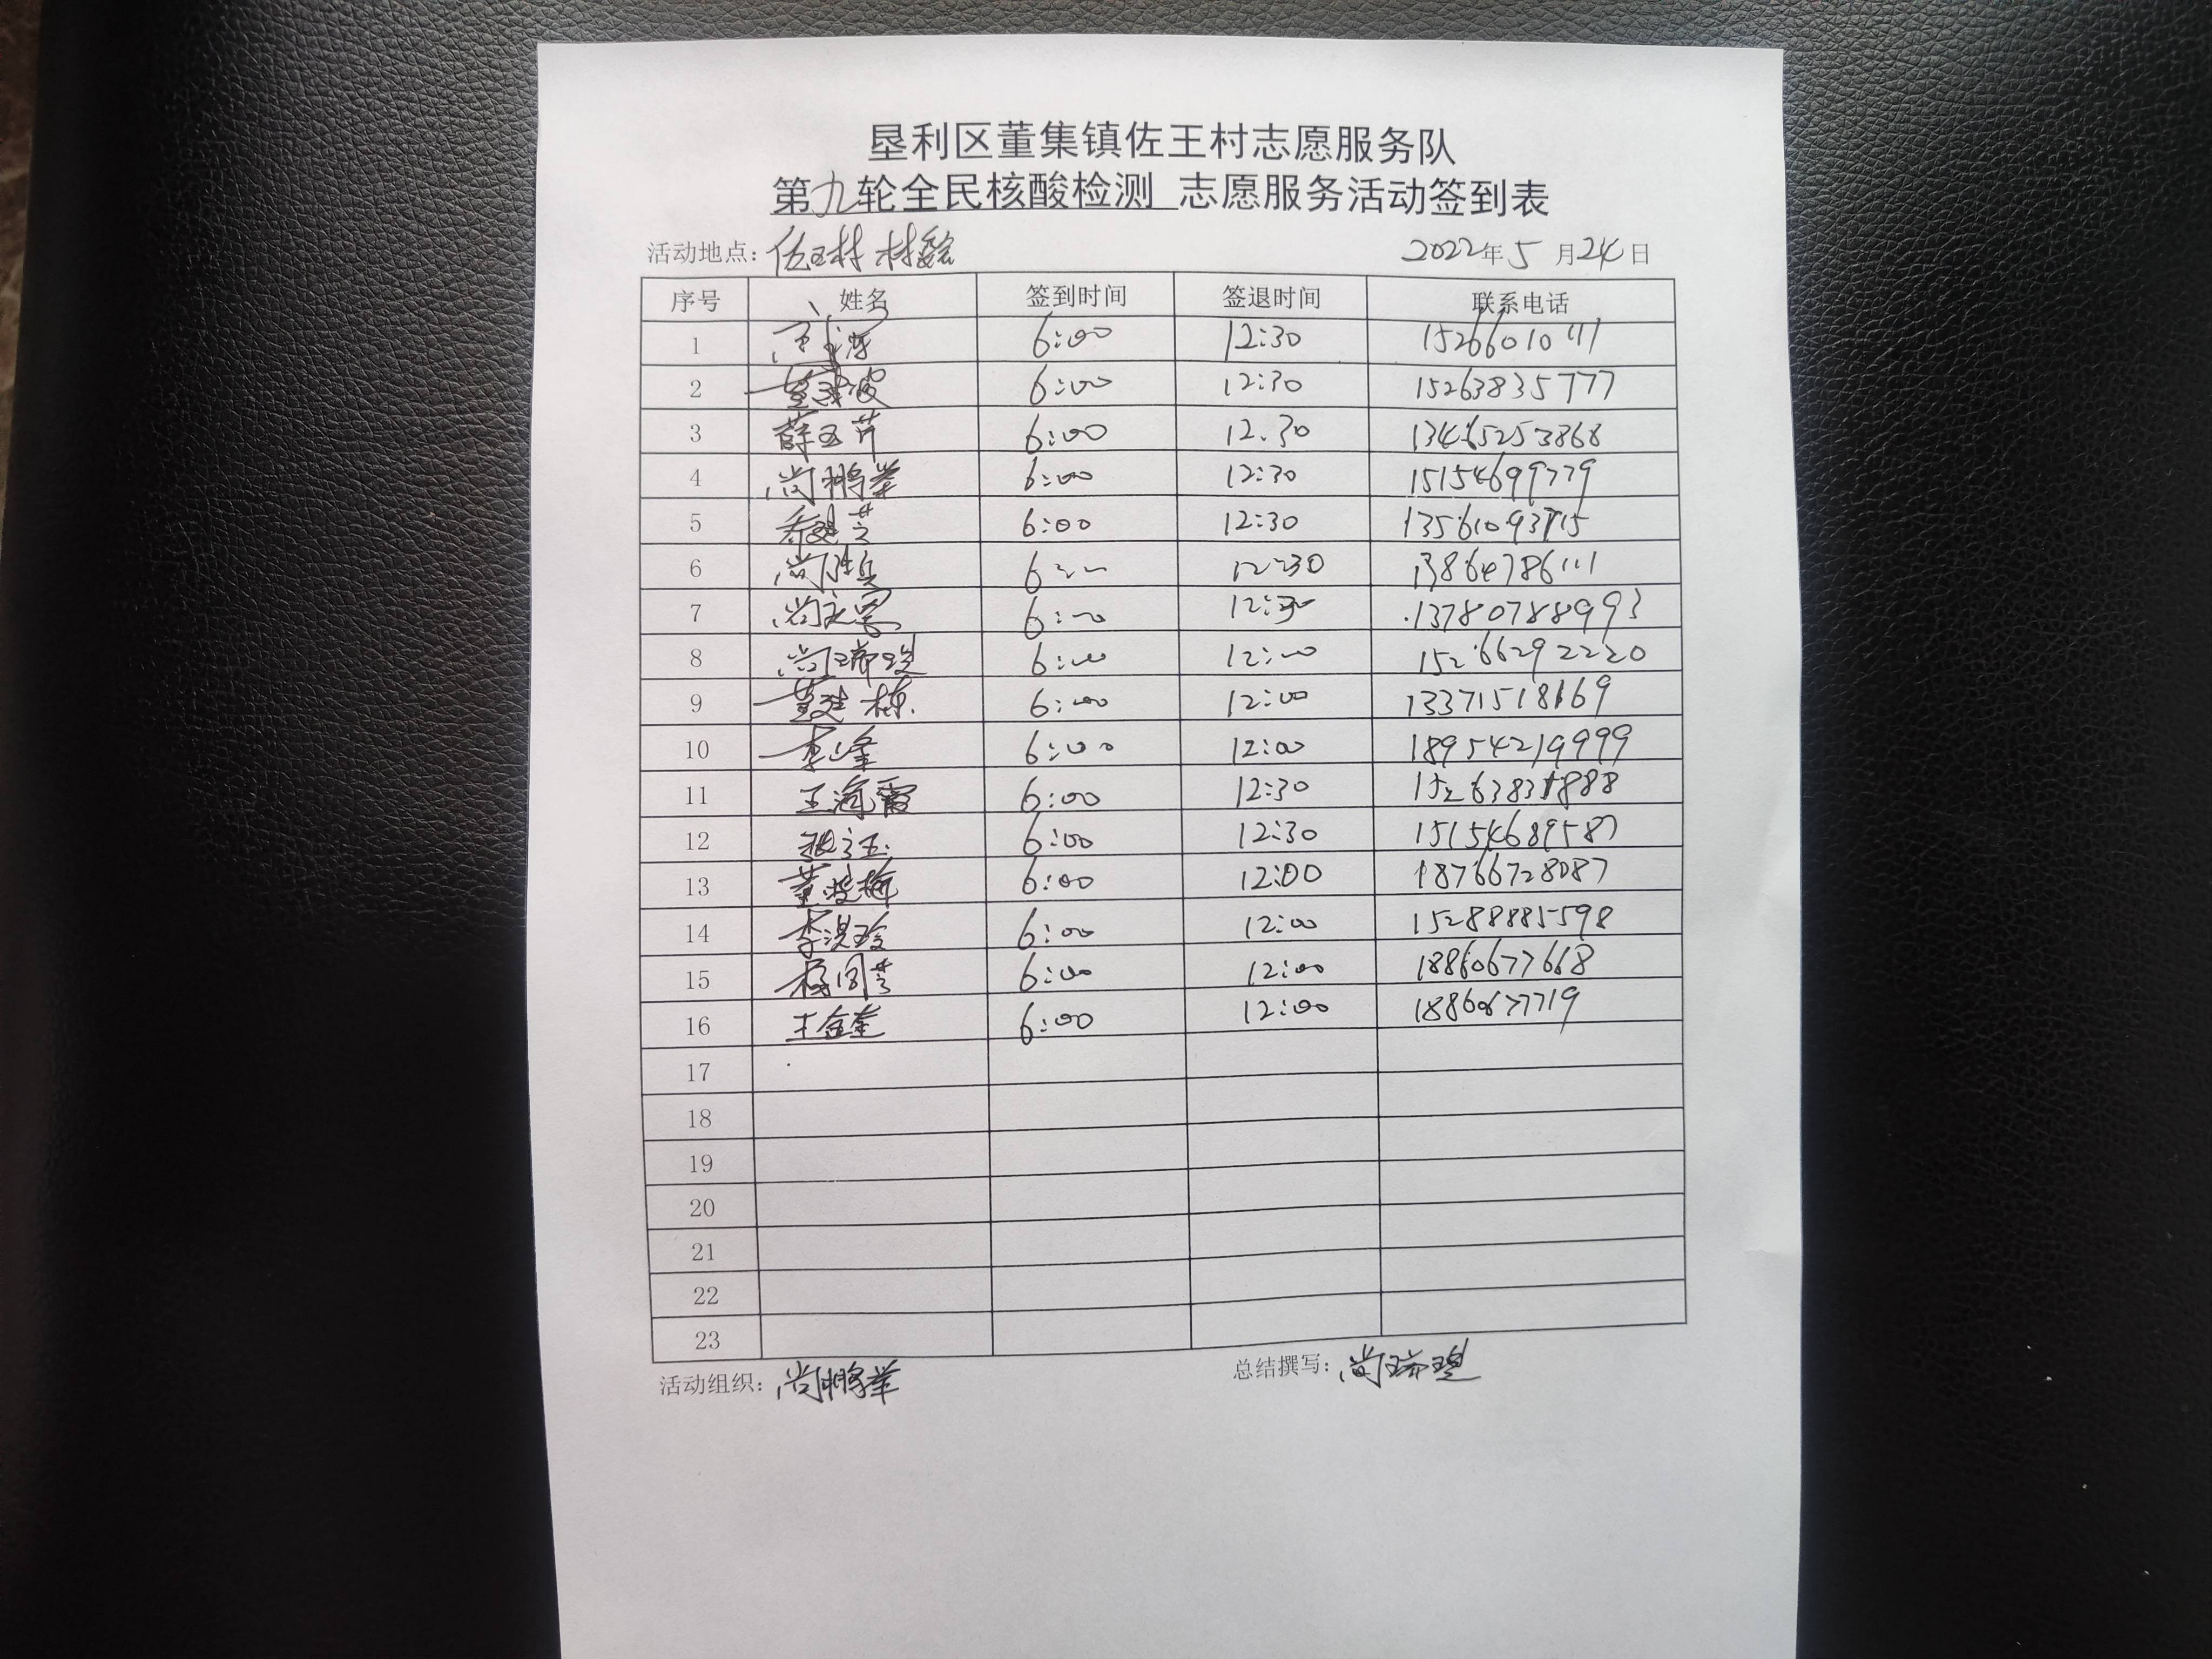 垦利区董集镇佐王村志愿服务队
第九轮全民核酸检测 志愿服务活动签到表
活动地点：佐王村 村 2022年5月24日
序号 姓名 签到时间 签退时间 联系电话
1 6:00 12:30 15266010111
2 6:00 12:30 15263835777
3 薛玉芹 6:00 12.30
4 尚鹏举 6:00 12:30 15154699779
5 6:00 12:30
6 尚胜兵 12:30 13864786111
7 12:30 13780788993
8 6:00 12:00 15266292220
9 董建栋 6:00 12:00 13371518169
10 李峰 6:00 12:00 18954219999
11 王海霞 6:00 12:30
12 6:00 12:30 15154689587
13 6:00 12:00 18766728087
14 6:00 12:00 15288885598
15 6:00 12:00 18860677668
16 王金奎 6:00 12:00 18860677719
17
18
19
20
21
22
23
活动组织：尚鹏举 总结撰写：